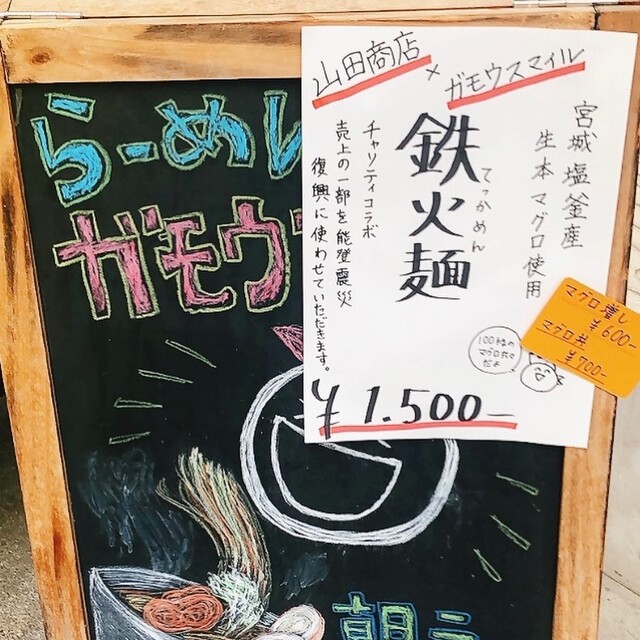 らーめん
ガモウス
山田商店
×
ガモウスマイル
宮城塩釜産
生本マグロ使用
鉄火麺
てっかめん
チャリティコラボ
売上の一部を能登震災
復興に使わせていただきます。
¥1.500-
マグロ増し
¥600-
マグロ丼
¥700-
朝ラ